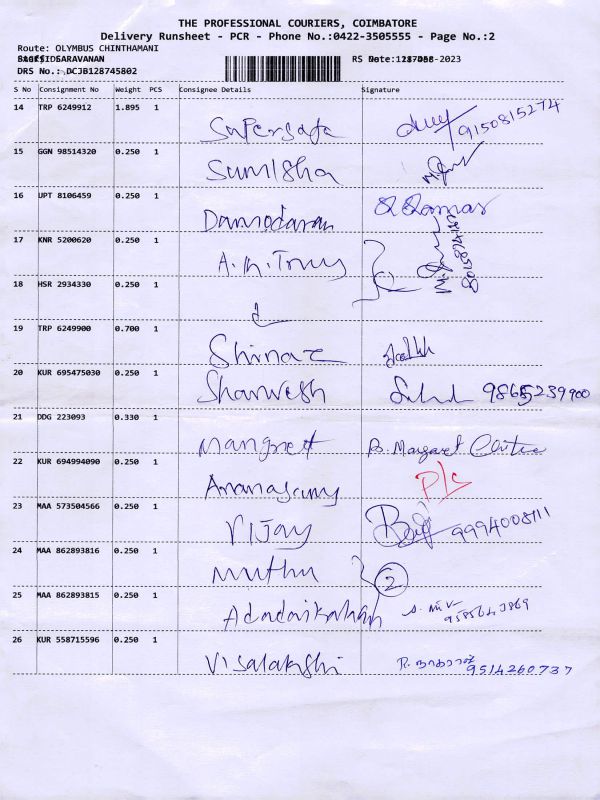 THE PROFESSIONAL COURIERS, COIMBATORE
Delivery Runsheet - PCR - Phone No.:0422-3505555 - Page No.:2
Route: OLYMBUS CHINTHAMANI
SARAVANAN RS Date: -2023
DRS No.: DCJB128745802
S No Consignment No Weight PCS Consignee Details Signature
14 TRP 6249912 1.895 1 Supersafe 9150815274
15 GGN 98514320 0.250 1 Sumisha
16 UPT 8106459 0.250 1 Damodaran
17 KNR 5200620 0.250 1 A.M.
18 HSR 2934330 0.250 1
19 TRP 6249900 0.700 1 Shinaz
20 KUR 695475030 0.250 1 Sharvesh 9865239900
21 DDG 223093 0.330 1 Mangret B. Margaret
22 KUR 694994090 0.250 1 P/c
23 MAA 573504566 0.250 1 Vijay
24 MAA 862893816 0.250 1 Muthu 2
25 MAA 862893815 0.250 1 Adadaikalam 9585643869
26 KUR 558715596 0.250 1 Visalakshi 9514260737